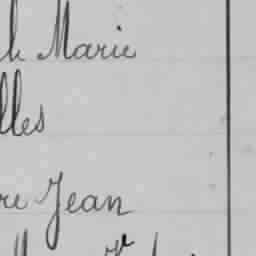 h Marie
lles
re Jean